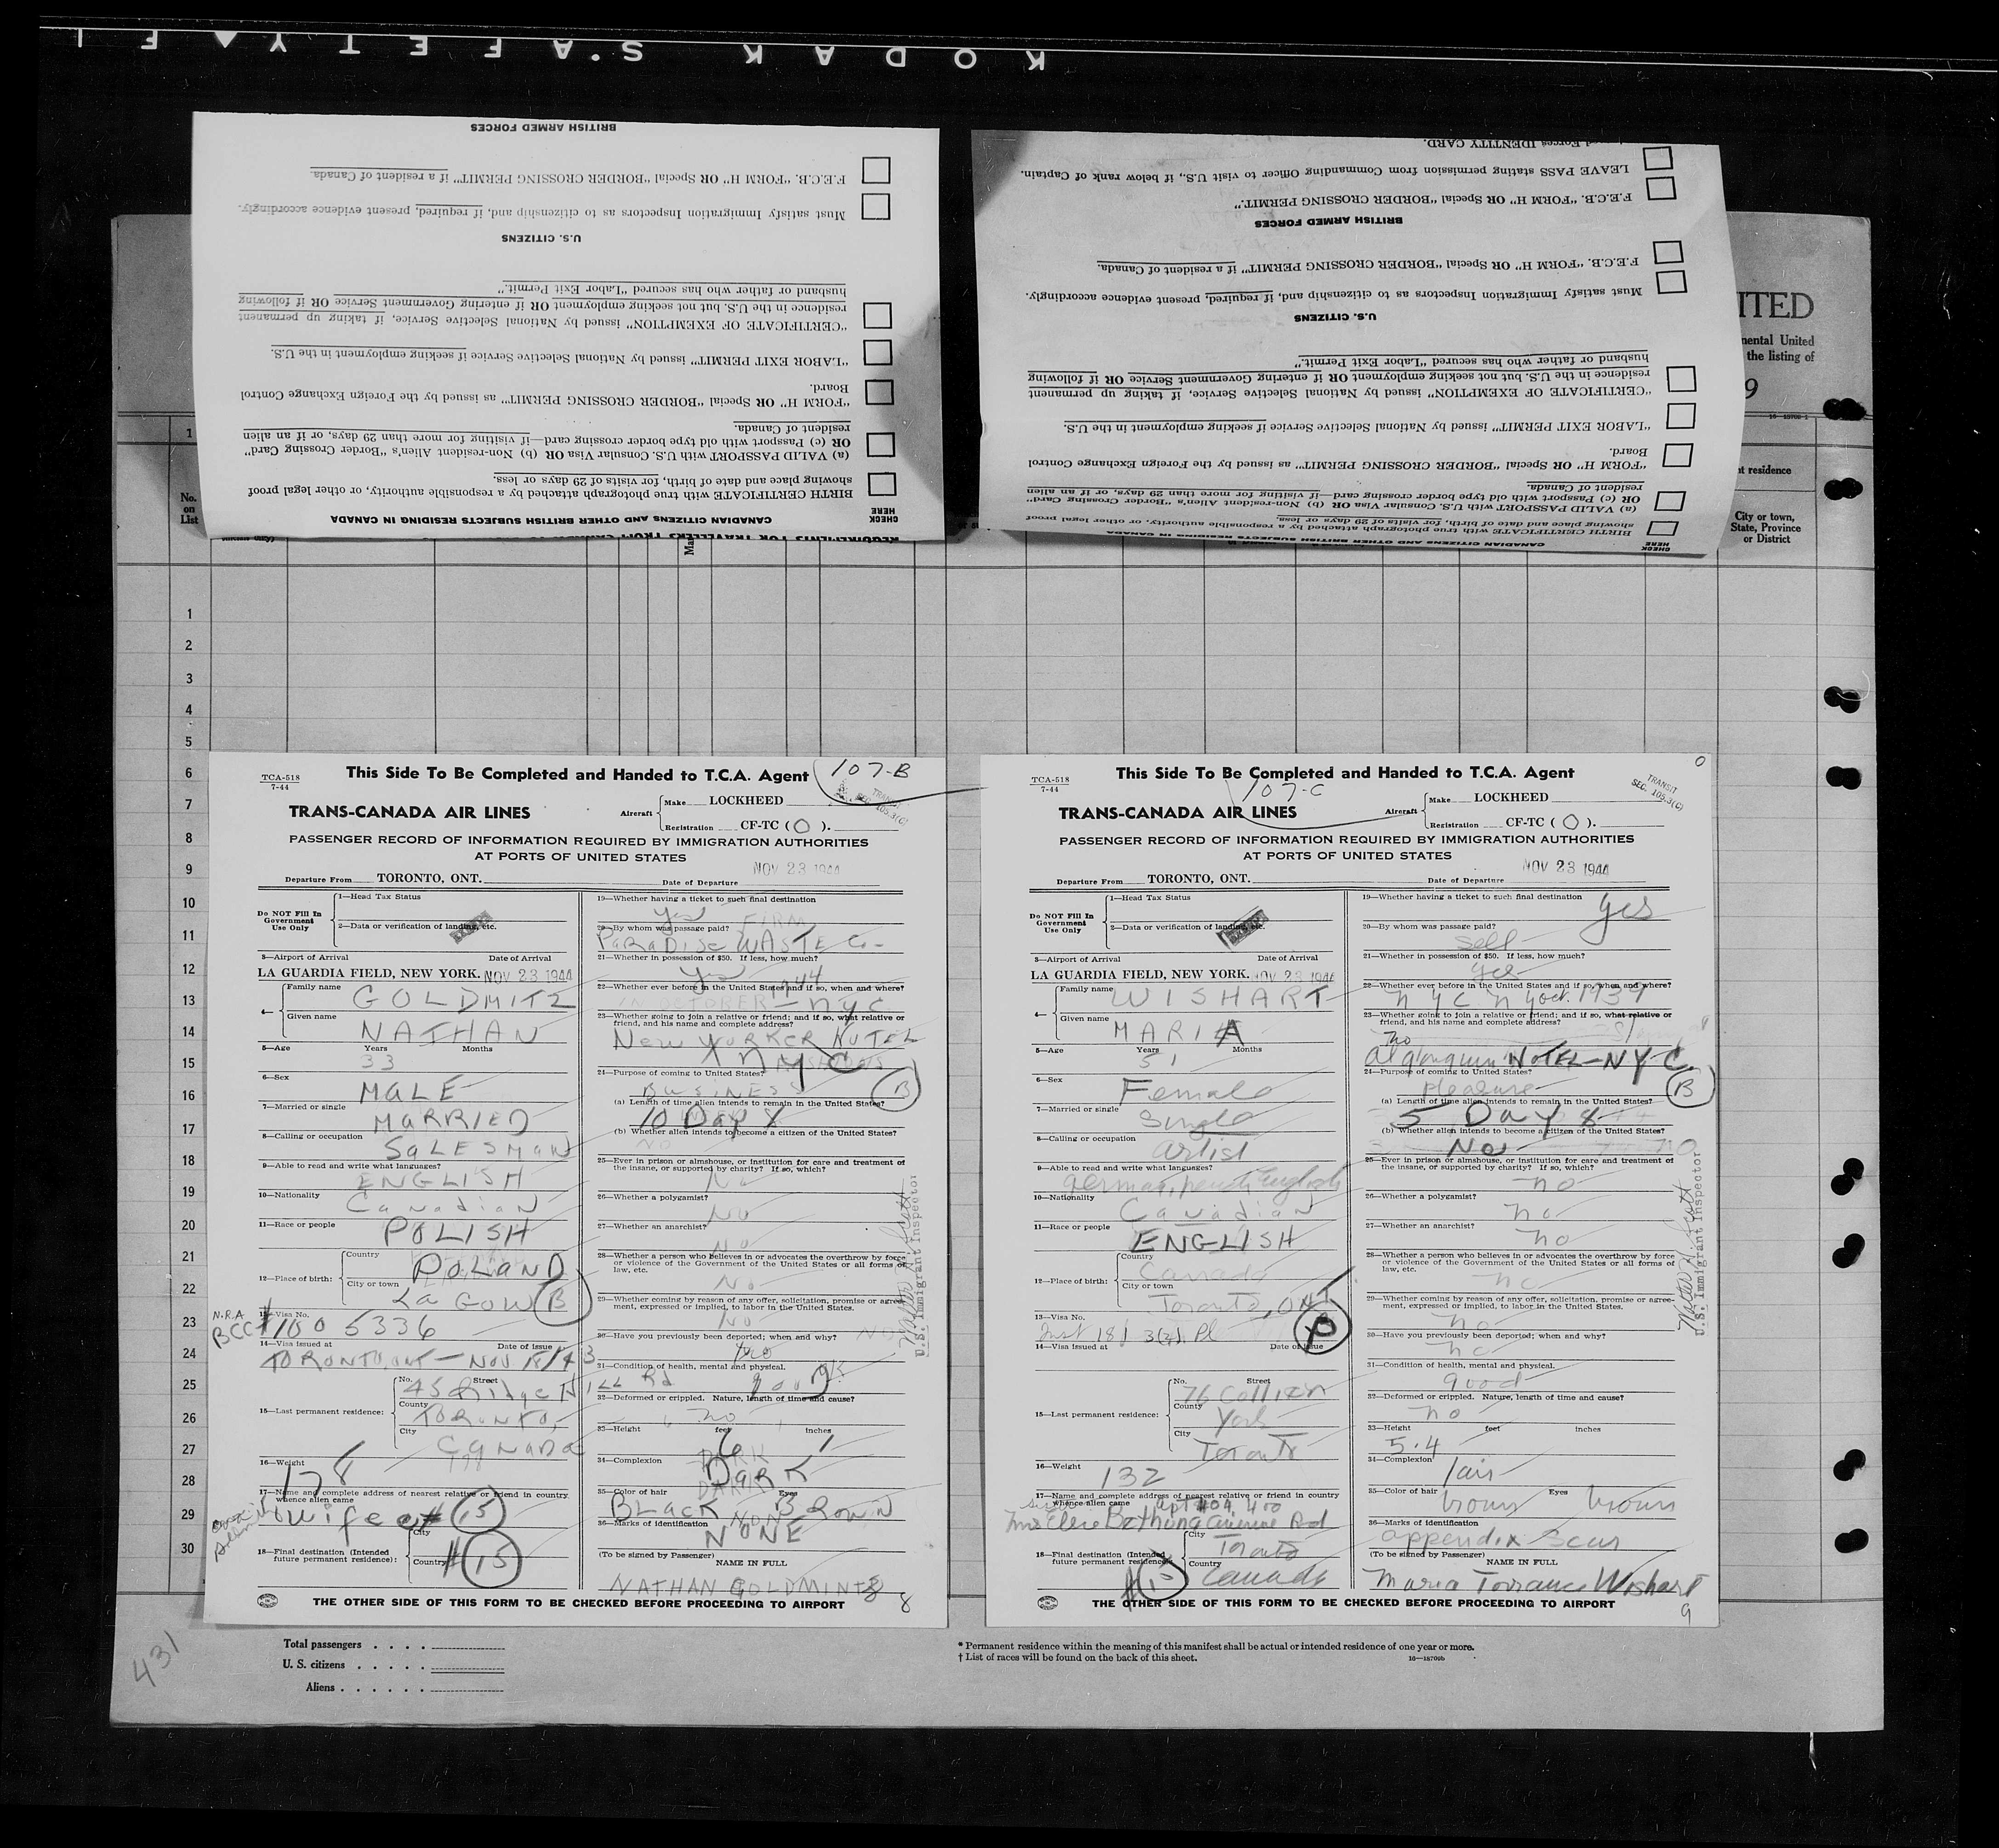 KODAK S'AFETY F I
BRITISH ARMED FORCES
F.E.C.B. "FORM H" OR Special "BORDER CROSSING PERMIT" if a resident of Canada.
Must satisfy Immigration Inspectors as to citizenship and, if required, present evidence accordingly.
U.S. CITIZENS
husband or father who has secured "Labor Exit Permit."
residence in the U.S. but not seeking employment OR if entering Government Service OR if following
"CERTIFICATE OF EXEMPTION" issued by National Selective Service, if taking up permanent
"LABOR EXIT PERMIT" issued by National Selective Service if seeking employment in the U.S.
Board.
"FORM H" OR Special "BORDER CROSSING PERMIT" as issued by the Foreign Exchange Control
resident of Canada.
OR (c) Passport with old type border crossing card—if visiting for more than 29 days, or if an alien
(a) VALID PASSPORT with U.S. Consular Visa OR (b) Non-resident Alien's "Border Crossing Card"
showing place and date of birth, for visits of 29 days or less.
BIRTH CERTIFICATE with true photograph attached by a responsible authority, or other legal proof
CANADIAN CITIZENS AND OTHER BRITISH SUBJECTS RESIDING IN CANADA
CHECK HERE
Forces IDENTITY CARD.
LEAVE PASS stating permission from Commanding Officer to visit U.S., if below rank of Captain.
F.E.C.B. "FORM H" OR Special "BORDER CROSSING PERMIT."
BRITISH ARMED FORCES
F.E.C.B. "FORM H" OR Special "BORDER CROSSING PERMIT" if a resident of Canada.
Must satisfy Immigration Inspectors as to citizenship and, if required, present evidence accordingly.
U.S. CITIZENS
husband or father who has secured "Labor Exit Permit."
residence in the U.S. but not seeking employment OR if entering Government Service OR if following
"CERTIFICATE OF EXEMPTION" issued by National Selective Service, if taking up permanent
"LABOR EXIT PERMIT" issued by National Selective Service if seeking employment in the U.S.
Board.
"FORM H" OR Special "BORDER CROSSING PERMIT" as issued by the Foreign Exchange Control
resident of Canada.
OR (c) Passport with old type border crossing card—if visiting for more than 29 days, or if an alien
(a) VALID PASSPORT with U.S. Consular Visa OR (b) Non-resident Alien's "Border Crossing Card"
showing place and date of birth, for visits of 29 days or less.
BIRTH CERTIFICATE with true photograph attached by a responsible authority, or other legal proof
CANADIAN CITIZENS AND OTHER BRITISH SUBJECTS RESIDING IN CANADA
CHECK HERE
ITED
nental United
the listing of
9
t residence
City or town,
State, Province
or District
No.
on
List
1
2
3
4
5
6
7
8
9
10
11
12
13
14
15
16
17
18
19
20
21
22
23
24
25
26
27
28
29
30
TCA-518
7-44
This Side To Be Completed and Handed to T.C.A. Agent
107-B
TRANS-CANADA AIR LINES
Aircraft
Make LOCKHEED
Registration CF-TC (O).
TRANSIT
SEC. 105.3(C)
PASSENGER RECORD OF INFORMATION REQUIRED BY IMMIGRATION AUTHORITIES
AT PORTS OF UNITED STATES
Departure From TORONTO, ONT. Date of Departure NOV 23 1944
Do NOT Fill In Government Use Only
1—Head Tax Status
2—Data or verification of landing, etc.
3—Airport of Arrival Date of Arrival
LA GUARDIA FIELD, NEW YORK. NOV 23 1944
4— Family name GOLDMITZ
Given name NATHAN
5—Age Years Months
33
6—Sex MALE
7—Married or single MARRIED
8—Calling or occupation SALESMAN
9—Able to read and write what languages?
ENGLISH
10—Nationality Canadian
11—Race or people POLISH
12—Place of birth: Country POLAND
City or town LAGOW (B)
N.R.A.
13—Visa No.
BCC #1005336
14—Visa issued at Date of issue
TORONTO, ONT — NOV 18/43
15—Last permanent residence: No. Street 45 Ridge Hill Rd
County TORONTO,
City CANADA
16—Weight 178
178
17—Name and complete address of nearest relative or friend in country whence alien came
wife #15
18—Final destination (Intended future permanent residence): City
Country #15
19—Whether having a ticket to such final destination
yes
20—By whom was passage paid? FIRM
PARADISE WASTE Co-
21—Whether in possession of $50. If less, how much?
yes
22—Whether ever before in the United States and if so, when and where?
IN OCTOBER 1944 — NYC
23—Whether going to join a relative or friend; and if so, what relative or friend, and his name and complete address?
NEW YORKER HOTEL
NYC
24—Purpose of coming to United States?
BUSINESS (B)
(a) Length of time alien intends to remain in the United States?
10 Days
(b) Whether alien intends to become a citizen of the United States?
NO
25—Ever in prison or almshouse, or institution for care and treatment of the insane, or supported by charity? If so, which?
No
26—Whether a polygamist?
No
27—Whether an anarchist?
No
28—Whether a person who believes in or advocates the overthrow by force or violence of the Government of the United States or all forms of law, etc.
No
29—Whether coming by reason of any offer, solicitation, promise or agreement, expressed or implied, to labor in the United States.
No
30—Have you previously been deported; when and why?
No
31—Condition of health, mental and physical.
good
32—Deformed or crippled. Nature, length of time and cause?
no
33—Height feet inches
6 1
34—Complexion DARK
35—Color of hair Eyes
BLACK BROWN
36—Marks of identification NONE
(To be signed by Passenger) NAME IN FULL
NATHAN GOLDMINTZ
8
U.S. Immigrant Inspector
THE OTHER SIDE OF THIS FORM TO BE CHECKED BEFORE PROCEEDING TO AIRPORT
TCA-518
7-44
This Side To Be Completed and Handed to T.C.A. Agent
107-C
TRANS-CANADA AIR LINES
Aircraft
Make LOCKHEED
Registration CF-TC (O).
TRANSIT
SEC. 105.3(C)
PASSENGER RECORD OF INFORMATION REQUIRED BY IMMIGRATION AUTHORITIES
AT PORTS OF UNITED STATES
Departure From TORONTO, ONT. Date of Departure NOV 23 1944
Do NOT Fill In Government Use Only
1—Head Tax Status
2—Data or verification of landing, etc.
3—Airport of Arrival Date of Arrival
LA GUARDIA FIELD, NEW YORK. NOV 23 1944
4— Family name WISHART
Given name MARIA
5—Age Years Months
51
6—Sex Female
7—Married or single Single
8—Calling or occupation artist
9—Able to read and write what languages?
german, french English
10—Nationality Canadian
11—Race or people ENGLISH
12—Place of birth: Country Canada
City or town Toronto, ONT
13—Visa No.
14—Visa issued at Date of issue
15—Last permanent residence: No. Street 76 Collier
County York
City Toronto
16—Weight 132
17—Name and complete address of nearest relative or friend in country whence alien came
Apt #04 400
Bethune Avenue Rd
18—Final destination (Intended future permanent residence): City Toronto
Country Canada
19—Whether having a ticket to such final destination
yes
20—By whom was passage paid?
self
21—Whether in possession of $50. If less, how much?
yes
22—Whether ever before in the United States and if so, when and where?
N Y C N Y oct. 1939
23—Whether going to join a relative or friend; and if so, what relative or friend, and his name and complete address?
no
Algonquin HOTEL—NYC.
24—Purpose of coming to United States?
pleasure (B)
(a) Length of time alien intends to remain in the United States?
5 Days
(b) Whether alien intends to become a citizen of the United States?
No no
25—Ever in prison or almshouse, or institution for care and treatment of the insane, or supported by charity? If so, which?
no
26—Whether a polygamist?
no
27—Whether an anarchist?
no
28—Whether a person who believes in or advocates the overthrow by force or violence of the Government of the United States or all forms of law, etc.
no
29—Whether coming by reason of any offer, solicitation, promise or agreement, expressed or implied, to labor in the United States.
no
30—Have you previously been deported; when and why?
no
31—Condition of health, mental and physical.
good
32—Deformed or crippled. Nature, length of time and cause?
no
33—Height feet inches
5.4
34—Complexion fair
35—Color of hair Eyes
brown brown
36—Marks of identification
appendix scar
(To be signed by Passenger) NAME IN FULL
Maria Torrance Wishart
9
U.S. Immigrant Inspector
THE OTHER SIDE OF THIS FORM TO BE CHECKED BEFORE PROCEEDING TO AIRPORT
431
Total passengers . . . .
U. S. citizens . . . . .
Aliens . . . . . .
* Permanent residence within the meaning of this manifest shall be actual or intended residence of one year or more.
† List of races will be found on the back of this sheet.
16—18709b